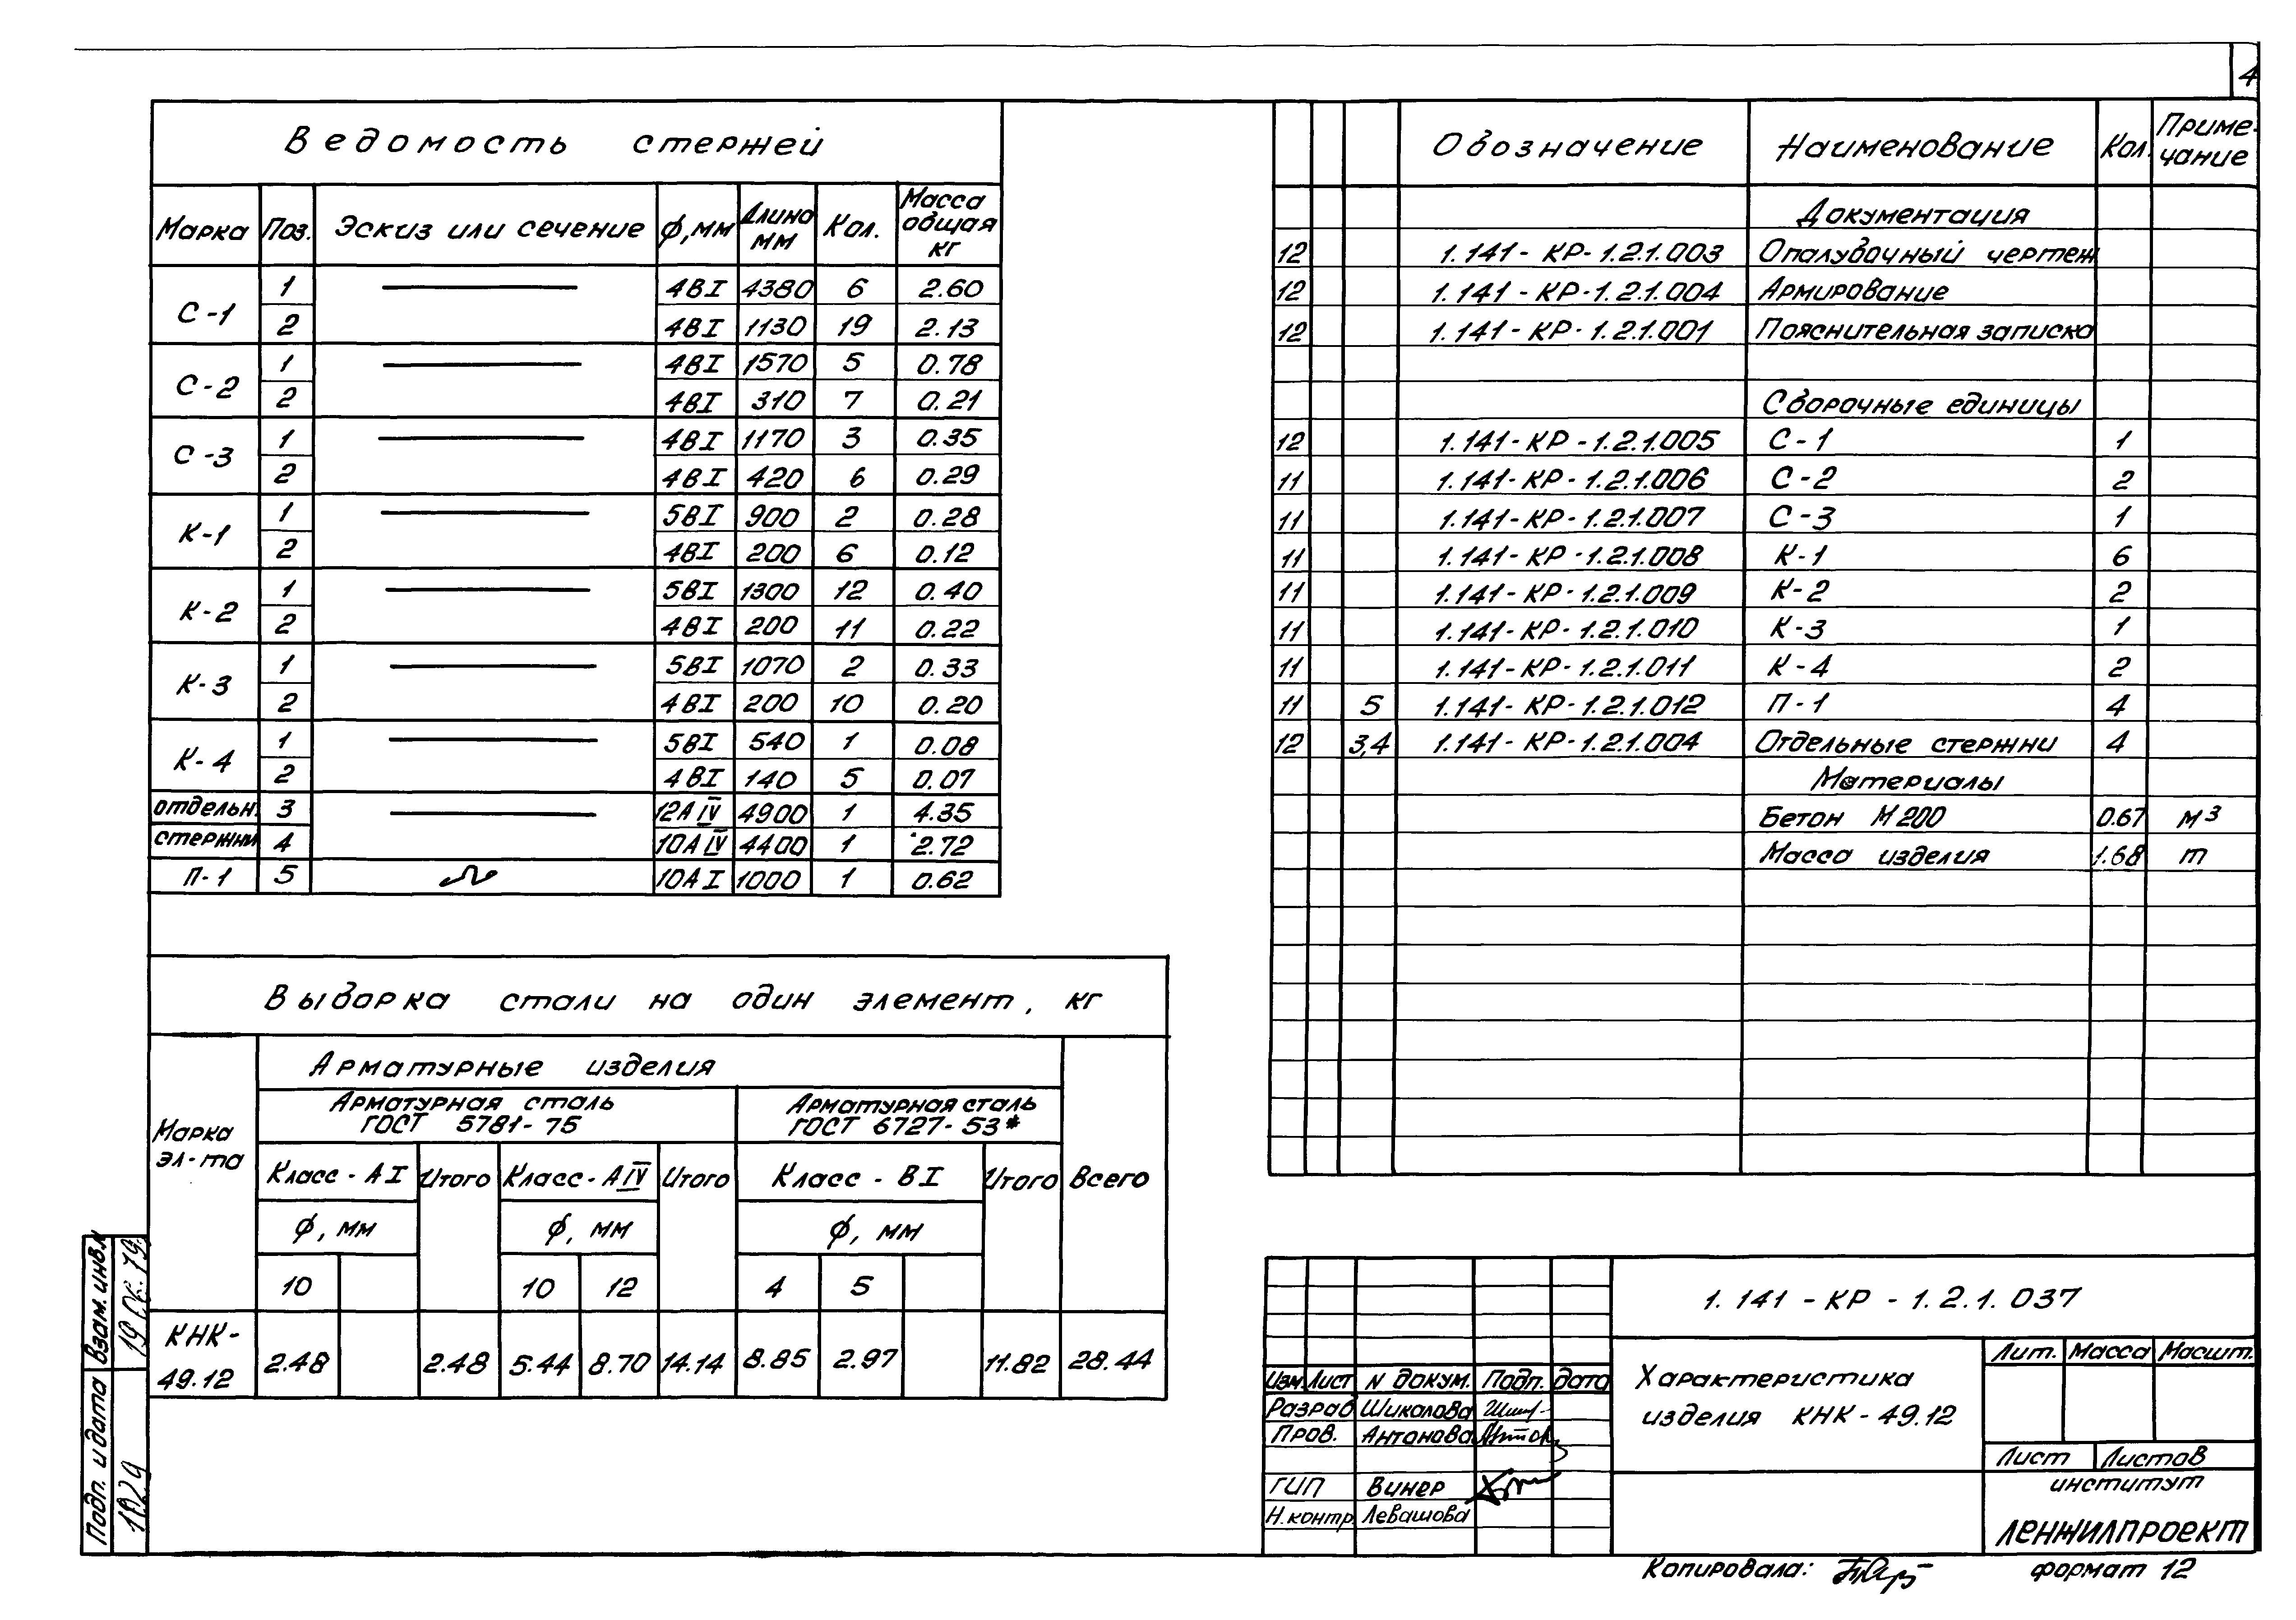 4
Ведомость стержей
Марка Поз. Эскиз или сечение ф,мм Длина мм Кол. Масса общая кг
С-1 1 4ВI 4380 6 2.60
2 4ВI 1130 19 2.13
С-2 1 4ВI 1570 5 0.78
2 4ВI 310 7 0.21
С-3 1 4ВI 1170 3 0.35
2 4ВI 420 6 0.29
К-1 1 5ВI 900 2 0.28
2 4ВI 200 6 0.12
К-2 1 5ВI 1300 12 0.40
2 4ВI 200 11 0.22
К-3 1 5ВI 1070 2 0.33
2 4ВI 200 10 0.20
К-4 1 5ВI 540 1 0.08
2 4ВI 140 5 0.07
отдельн. 3 12АIV 4900 1 4.35
стержни 4 10АIV 4400 1 2.72
П-1 5 10АI 1000 1 0.62
Выборка стали на один элемент, кг
Марка эл-та
Арматурные изделия
Арматурная сталь ГОСТ 5781-75
Арматурная сталь ГОСТ 6727-53*
Класс-АI Итого Класс-АIV Итого Класс-ВI Итого Всего
ф, мм ф, мм ф, мм
10 10 12 4 5
КНК-49.12 2.48 2.48 5.44 8.70 14.14 8.85 2.97 11.82 28.44
Обозначение Наименование Кол. Примечание
Документация
12 1.141-КР-1.2.1.003 Опалубочный чертеж
12 1.141-КР-1.2.1.004 Армирование
12 1.141-КР-1.2.1.001 Пояснительная записка
Сборочные единицы
12 1.141-КР-1.2.1.005 С-1 1
11 1.141-КР-1.2.1.006 С-2 2
11 1.141-КР-1.2.1.007 С-3 1
11 1.141-КР-1.2.1.008 К-1 6
11 1.141-КР-1.2.1.009 К-2 2
11 1.141-КР-1.2.1.010 К-3 1
11 1.141-КР-1.2.1.011 К-4 2
11 5 1.141-КР-1.2.1.012 П-1 4
12 3,4 1.141-КР-1.2.1.004 Отдельные стержни 4
Материалы
Бетон М200 0.67 м3
Масса изделия 1.68 т
1.141-КР-1.2.1.037
Характеристика
изделия КНК-49.12
Лит. Масса Масшт.
Лист Листов
институт
ЛЕНЖИЛПРОЕКТ
Изм Лист N докум. Подп. дата
Разраб Шикалова
Пров. Антонова
ГИП Винер
Н.контр. Левашова
Копировала:
формат 12
Взам.инв.N
Подп. и дата